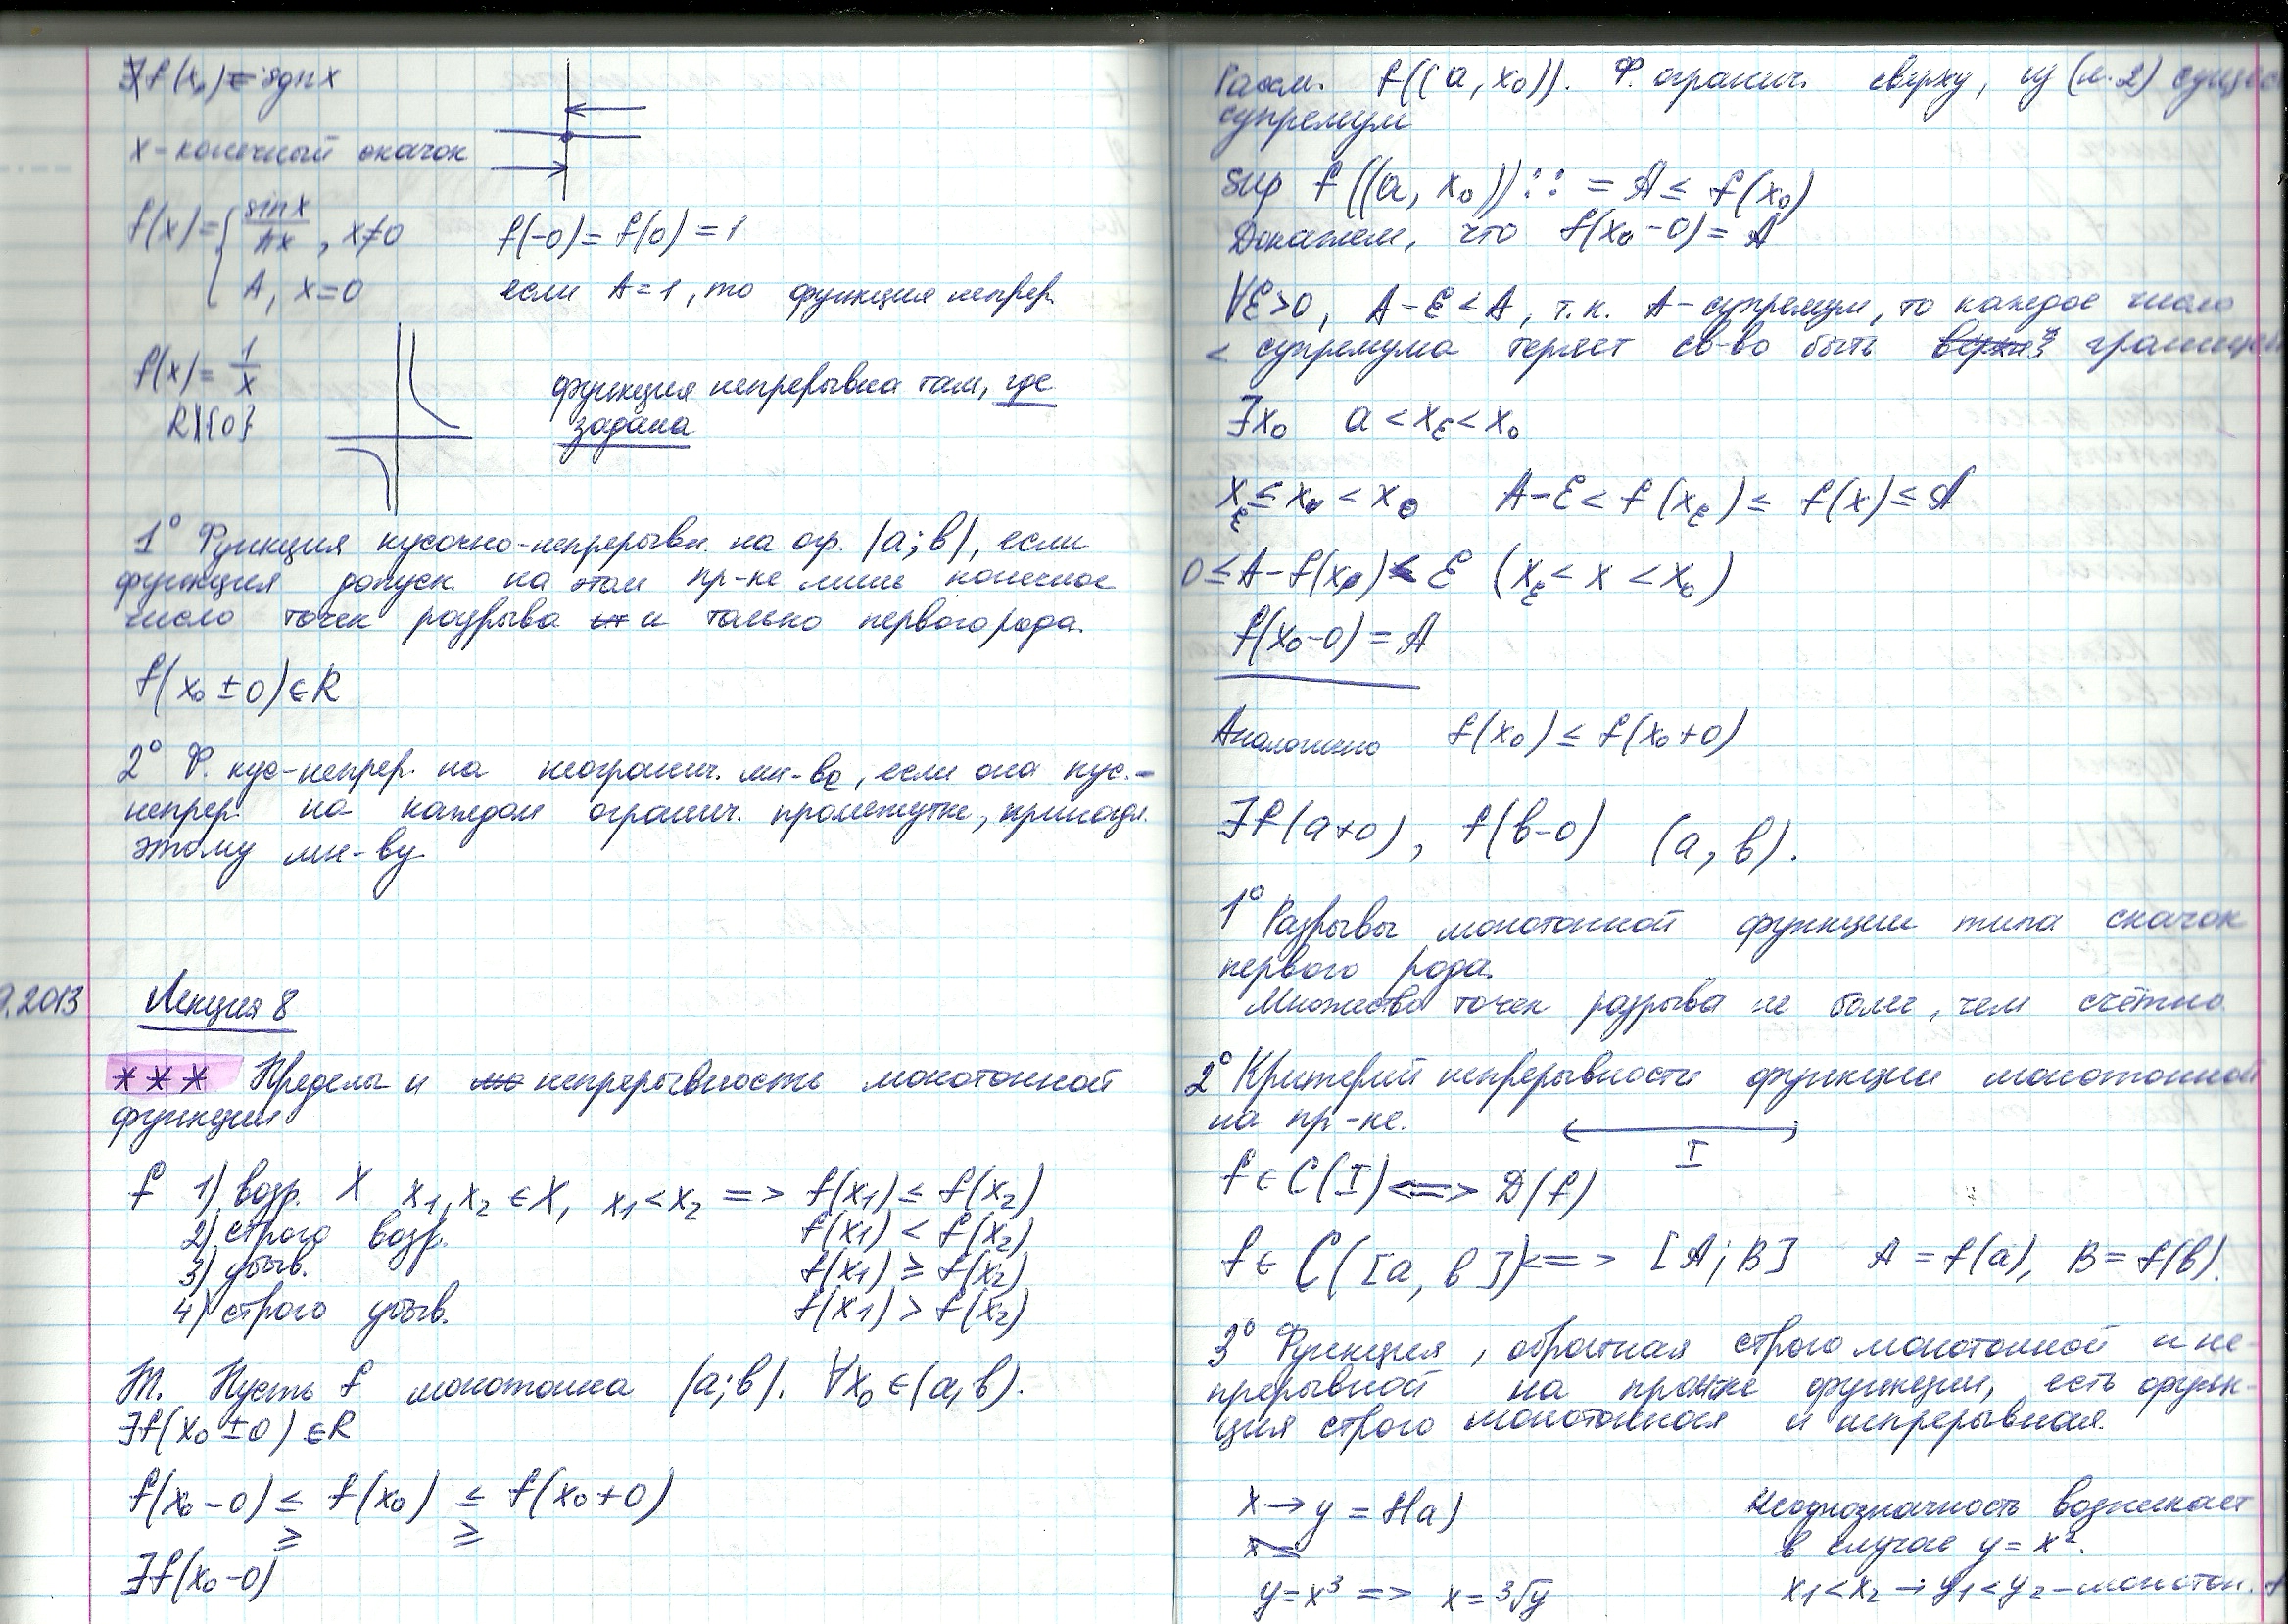 ∃f(x₀) = sgn x
x - конечный скачок
f(x) = { sin x / x , x≠0
A, x=0
f(-0) = f(0) = 1
если A=1, то функция непрер.
f(x) = 1/x
R\{0}
функция непрерывна там, где
задана
1° Функция кусочно-непрерывн. на огр. |a;b|, если
функция допуск. на этом пр-ке лишь конечное
число точек разрыва и только первого рода.
f(x₀ ± 0) ∈ R
2° Ф. кус-непрер. на неогранич. мн-ве, если она кус.-
непрер. на каждом огранич. промежутке, принадл.
этому мн-ву
9.2013 Лекция 8
*** Пределы и непрерывность монотонной
функции
f 1) возр. X x₁, x₂ ∈ X, x₁ < x₂ => f(x₁) ≤ f(x₂)
2) строго возр. f(x₁) < f(x₂)
3) убыв. f(x₁) ≥ f(x₂)
4) строго убыв. f(x₁) > f(x₂)
Т. Пусть f монотонна |a;b|. ∀x₀ ∈ (a,b).
∃f(x₀ ± 0) ∈ R
f(x₀ - 0) ≤ f(x₀) ≤ f(x₀ + 0)
≥ ≥
∃f(x₀ - 0)
Рассм. f((a, x₀)). Ф. огранич. сверху, из (л.2) сущес
супремум
sup f((a, x₀)) ::= A ≤ f(x₀)
Докажем, что f(x₀ - 0) = A
∀ε>0, A-ε<A, т.к. A - супремум, то каждое число
< супремума теряет св-во быть верхней границей
∃x₀ a < x_ε < x₀
x_ε ≤ x₀ < x₀ A-ε < f(x_ε) ≤ f(x) ≤ A
0 ≤ A - f(x₀) < ε (x_ε < x < x₀)
f(x₀-0) = A
Аналогично f(x₀) ≤ f(x₀+0)
∃f(a+0), f(b-0) (a, b).
1° Разрывы монотонной функции типа скачок
первого рода.
Множество точек разрыва не более, чем счётно.
2° Критерий непрерывности функции монотонной
на пр-ке.
I
f ∈ C(I) <=> D(f)
f ∈ C([a, b]) <=> [A; B] A = f(a), B = f(b).
3° Функция, обратная строго монотонной и не-
прерывной на пром-ке функции, есть функ-
ция строго монотонная и непрерывная.
x → y = f(a)
y = x³ => x = ³√y
Неоднозначность возникает
в случае y = x².
x₁<x₂ → y₁<y₂ - монотон.